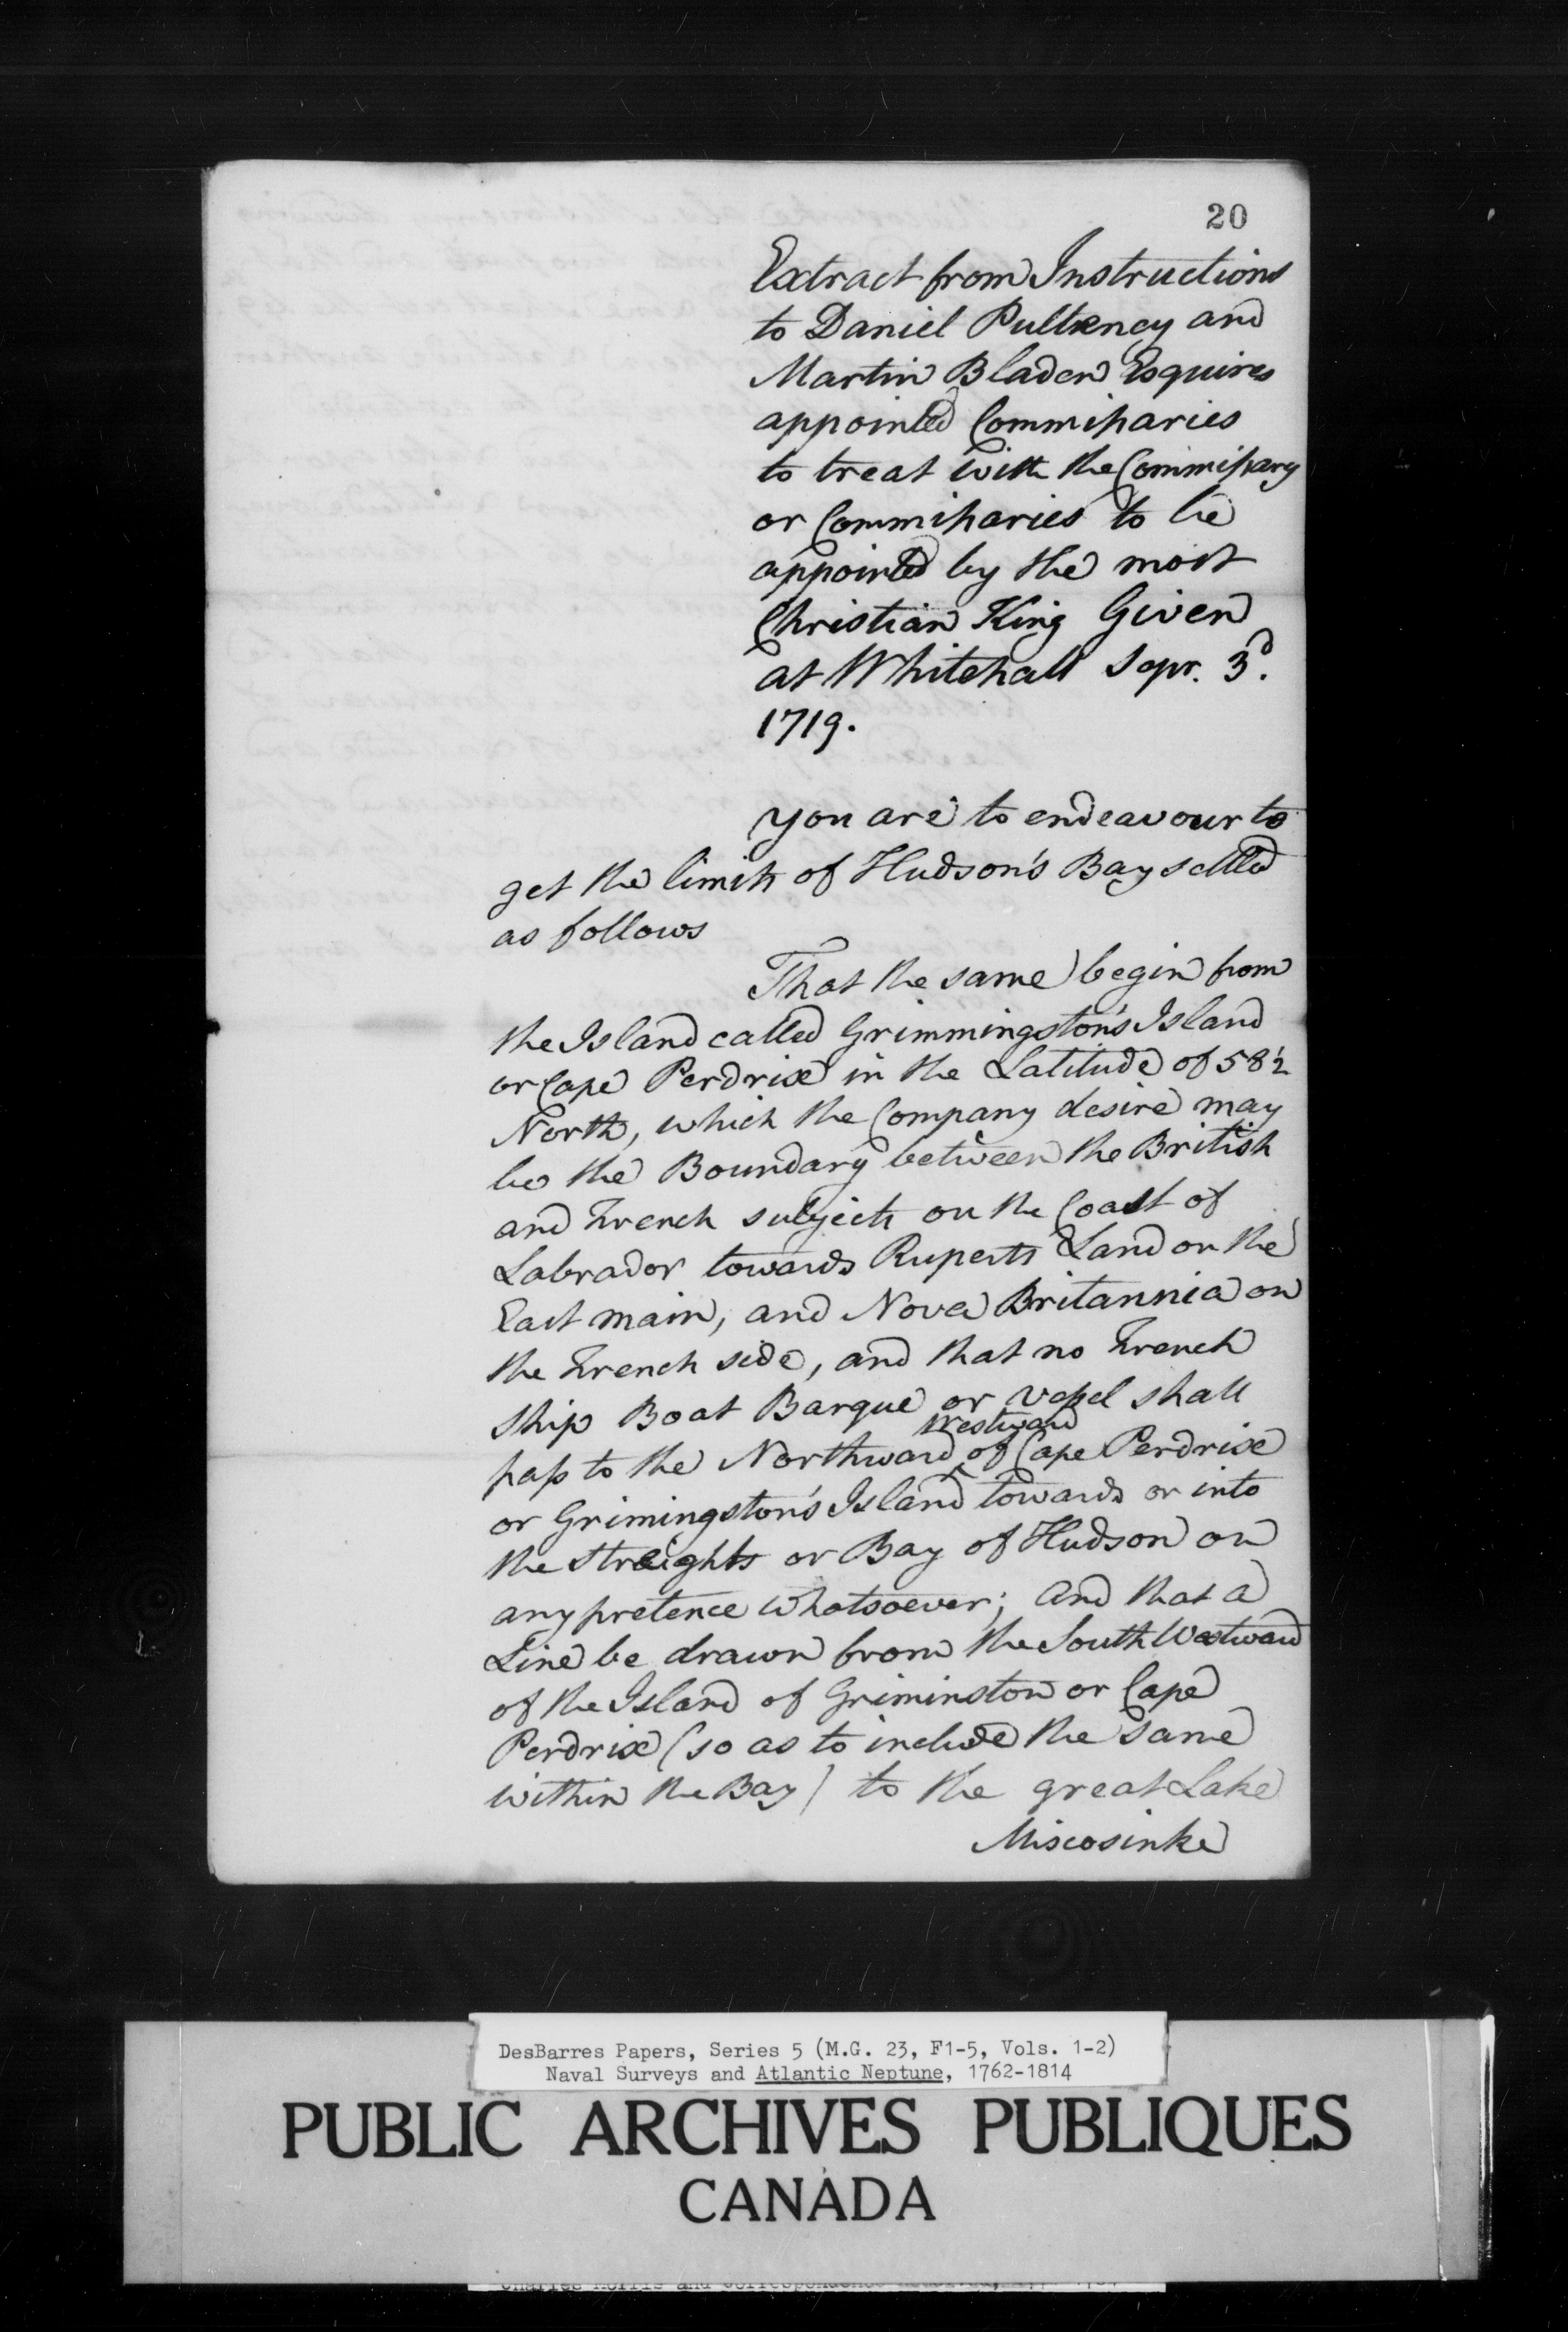 20
Extract from Instructions
to Daniel Pulteney and
Martin Bladen Esquires
appointed Commissaries
to treat with the Commissary
or Commissaries to be
appointed by the most
Christian King Given
at Whitehall Sepr. 3d.
1719.
You are to endeavour to
get the limits of Hudson's Bay settled
as follows
That the same begin from
the Island called Grimmingston's Island
or Cape Perdrix in the Latitude of 58½
North, which the Company desire may
be the Boundary between the British
and French subjects on the Coast of
Labrador towards Ruperts Land on the
East main, and Nova Britannia on
the French side, and that no French
Ship Boat Barque or Vessel shall
Westward
pass to the Northward ^ of Cape Perdrix
or Grimingston's Island towards or into
the Streights or Bay of Hudson on
any pretence whatsoever; And that a
Line be drawn from the South Westward
of the Island of Griminston or Cape
Perdrix (so as to include the same
within the Bay) to the great Lake
Miscosinke
DesBarres Papers, Series 5 (M.G. 23, F1-5, Vols. 1-2)
Naval Surveys and Atlantic Neptune, 1762-1814
PUBLIC ARCHIVES PUBLIQUES
CANADA